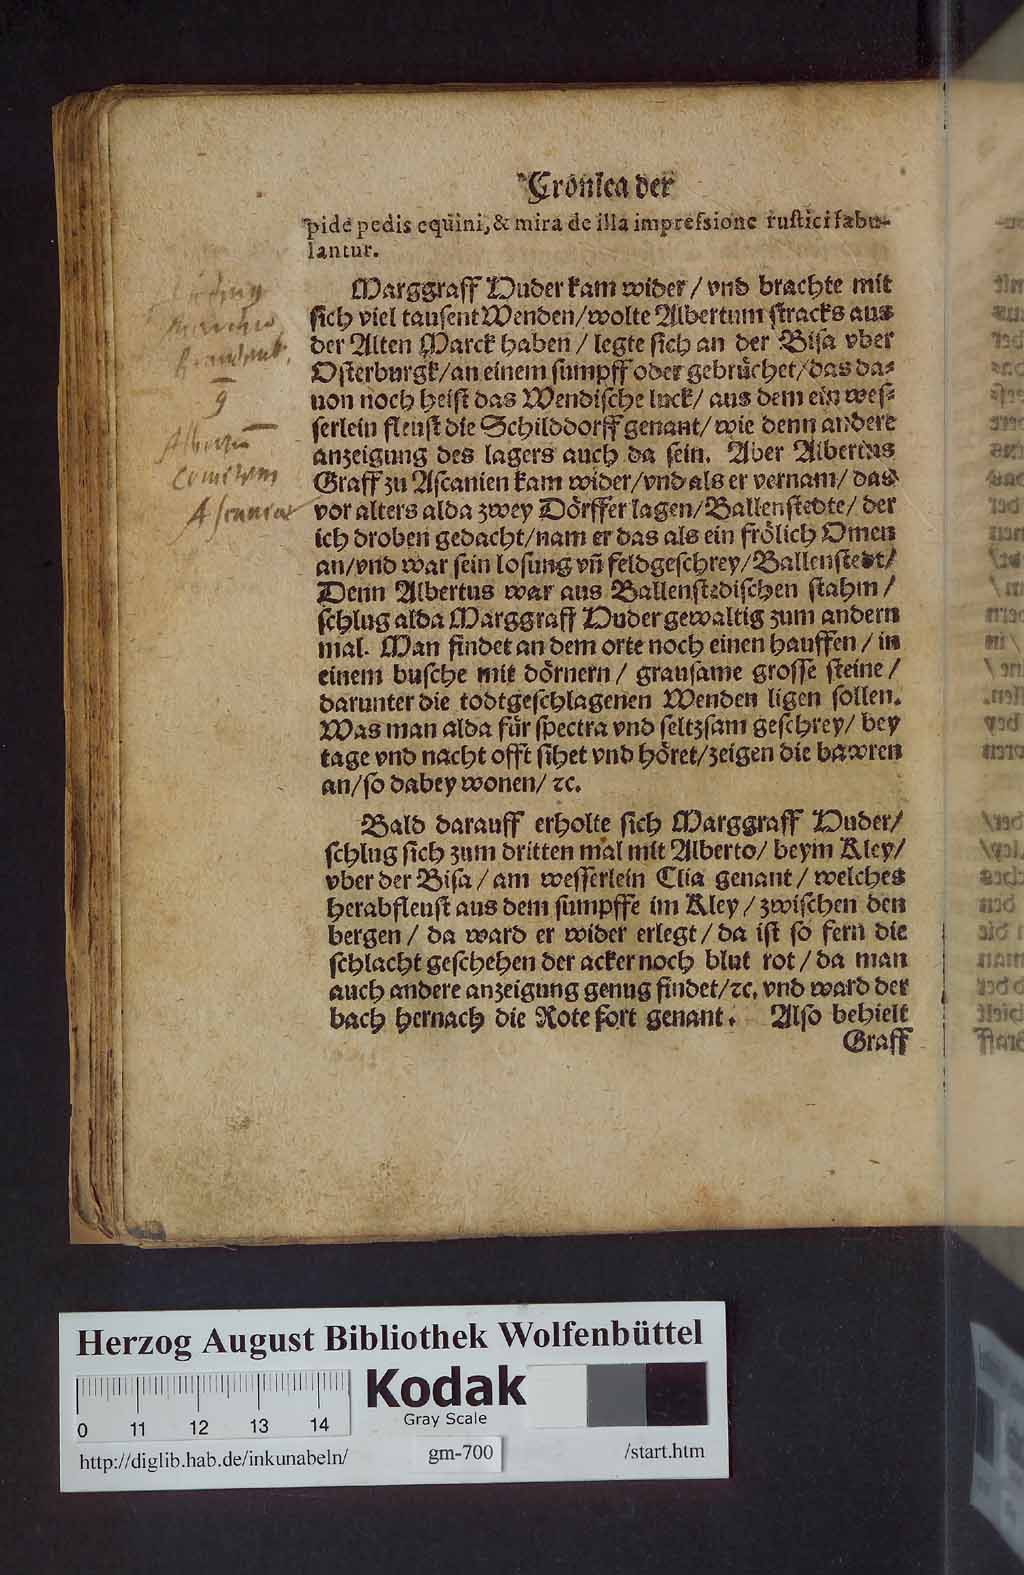 Cronica der
pide pedis equini, & mira de illa impreſsione ruſtici fabu-
lantur.
Marggraff Huder kam wider / vnd brachte mit
ſich viel tauſent Wenden / wolte Albertum ſtracks aus
der Alten Marck haben / legte ſich an der Biſa vber
Oſterburgk / an einem ſumpff oder gebrüchet / das da⸗
uon noch heiſt das Wendiſche luck / aus dem ein weſ⸗
ſerlein fleuſt die Schilddorff genant / wie denn andere
anzeigung des lagers auch da ſein. Aber Albertus
Graff zu Aſcanien kam wider / vnd als er vernam / das
vor alters alda zwey Dörffer lagen / Ballenſtedte / der
ich droben gedacht / nam er das als ein frölich Omen
an / vnd war ſein loſung vn̄ feldgeſchrey / Ballenſtedt /
Denn Albertus war aus Ballenſtediſchen ſtahm /
ſchlug alda Marggraff Huder gewaltig zum andern
mal. Man findet an dem orte noch einen hauffen / in
einem buſche mit dörnern / grauſame groſſe ſteine /
darunter die todtgeſchlagenen Wenden ligen ſollen.
Was man alda für ſpectra vnd ſeltzſam geſchrey / bey
tage vnd nacht offt ſihet vnd höret / zeigen die bawren
an / ſo dabey wonen / ꝛc.
Bald darauff erholte ſich Marggraff Huder /
ſchlug ſich zum dritten mal mit Alberto / beym Kley /
vber der Biſa / am weſſerlein Clia genant / welches
herabfleuſt aus dem ſumpffe im Kley / zwiſchen den
bergen / da ward er wider erlegt / da iſt ſo fern die
ſchlacht geſchehen der acker noch blut rot / da man
auch andere anzeigung genug findet / ꝛc. vnd ward der
bach hernach die Rote fort genant. Alſo behielt
Graff
comitem
Herzog August Bibliothek Wolfenbüttel
Kodak
Gray Scale
0 11 12 13 14
http://diglib.hab.de/inkunabeln/ gm-700 /start.htm